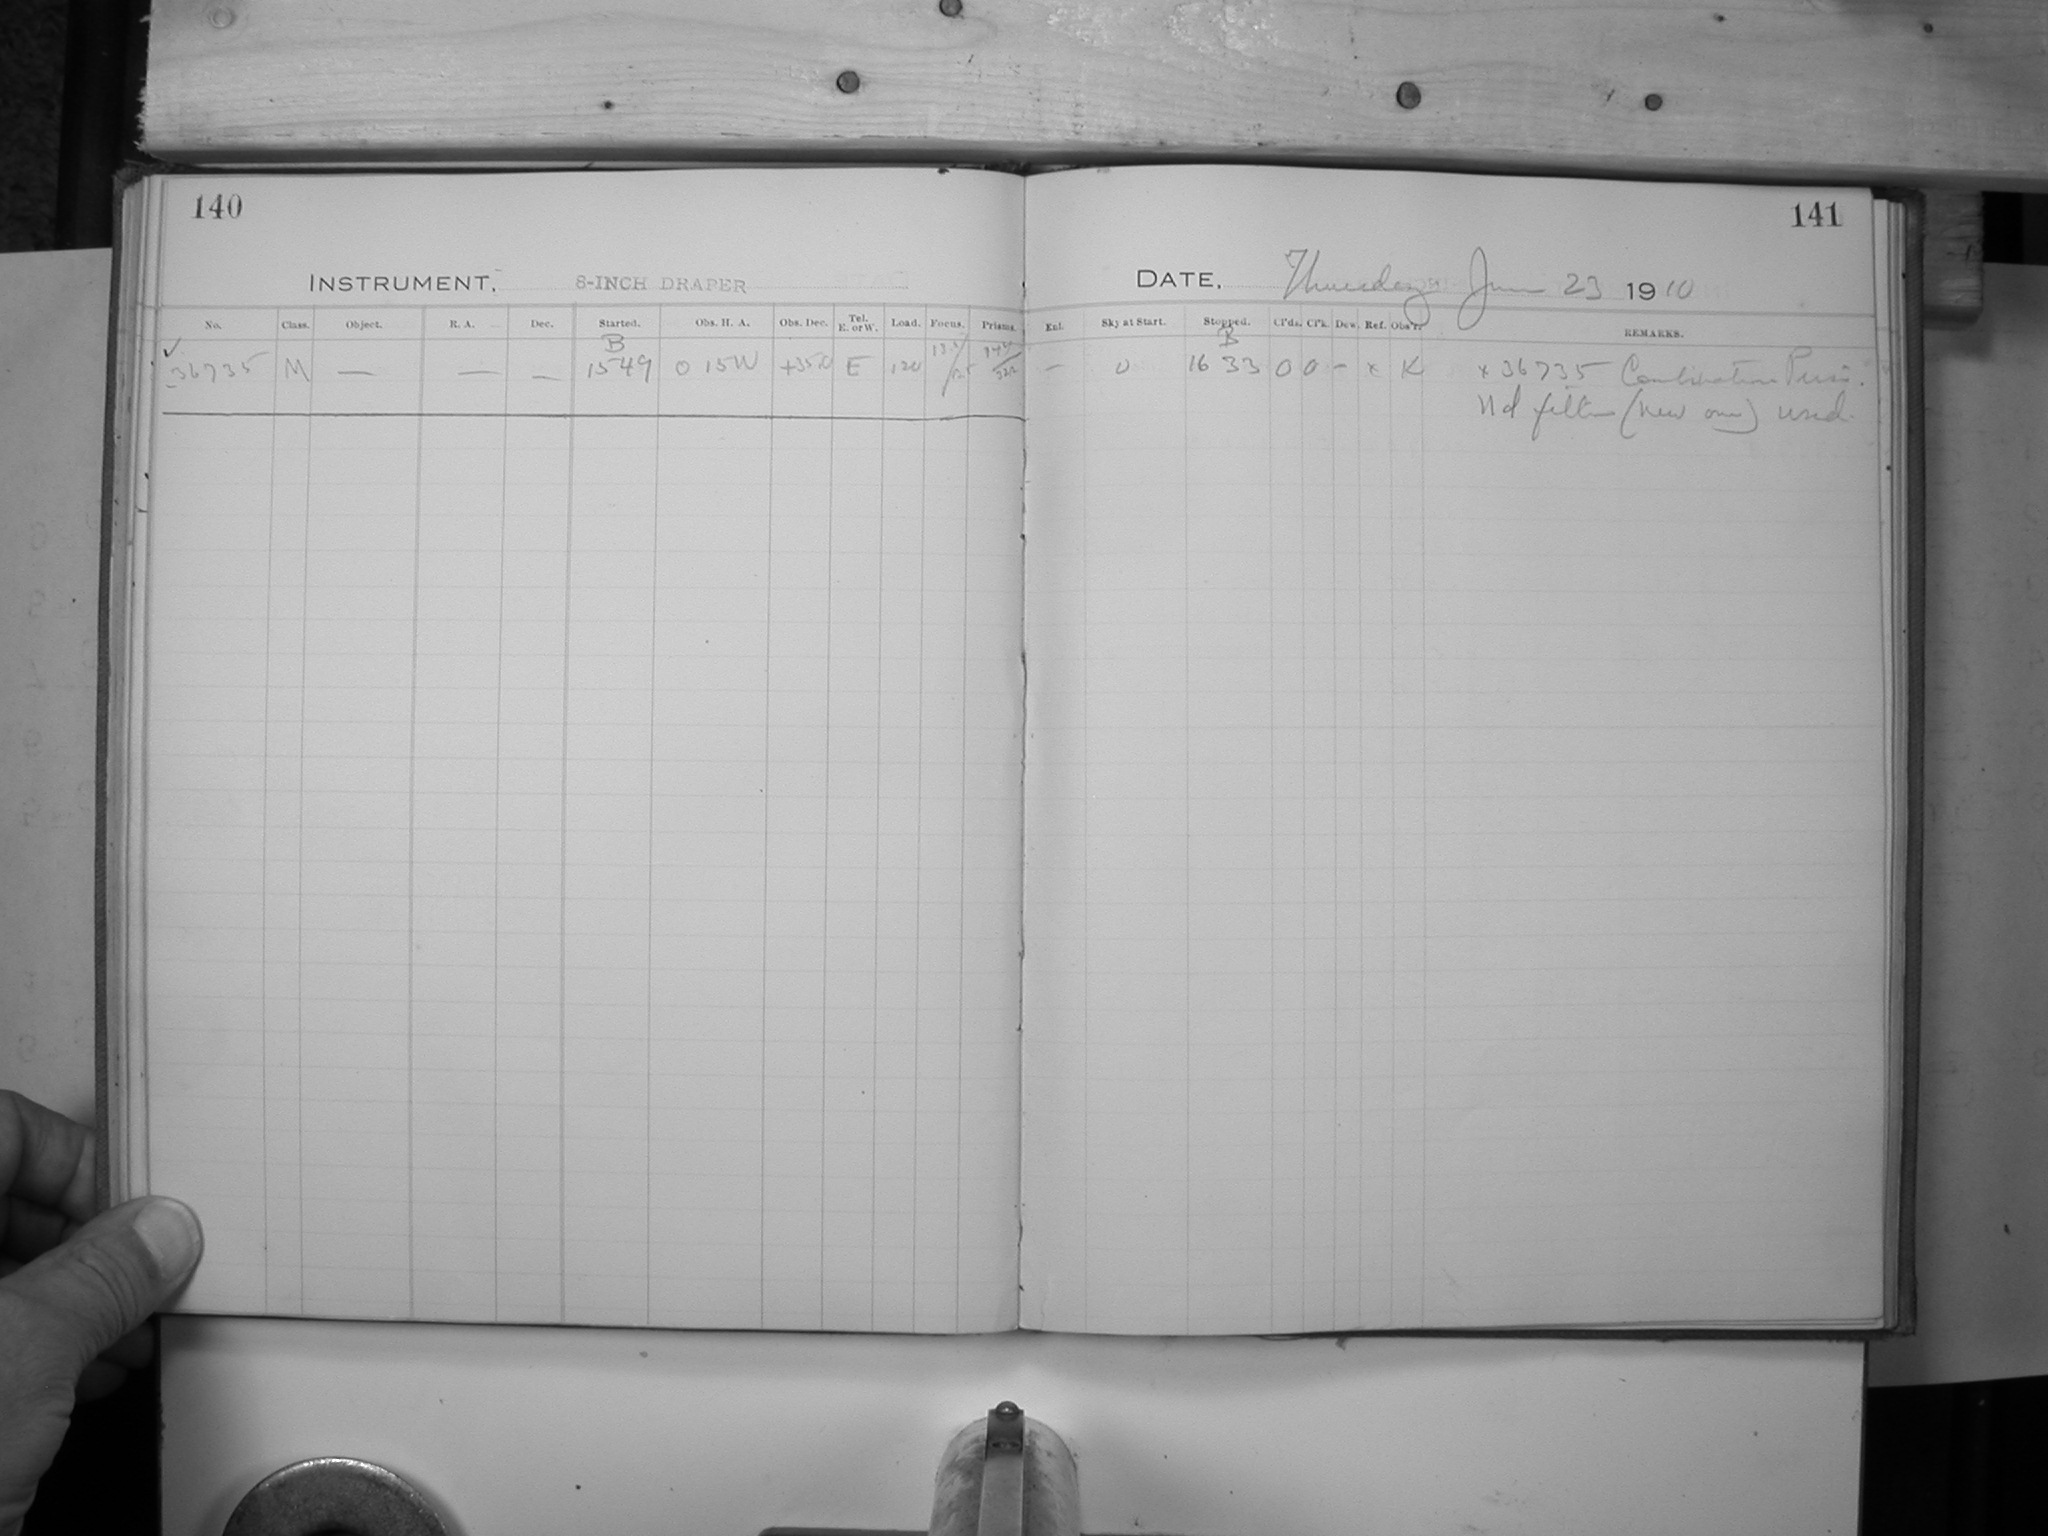 140
141
INSTRUMENT. 8-INCH DRAPER
DATE. Thursday June 23 1910
No. Class. Object. R. A. Dec. Started. Obs. H. A. Obs. Dec. Tel. E. or W. Load. Focus. Prisms.
Enl. Sky at Start. Stopped. Cl'ds. Cl'k. Dew. Ref. Obs'r. REMARKS.
B
B
✓ 36735 M — — — 1549 0 15W +35.0 E 120
— 0 16 33 0 0 - x K x 36735 Combination Prism.
Nd filter (new one) used.